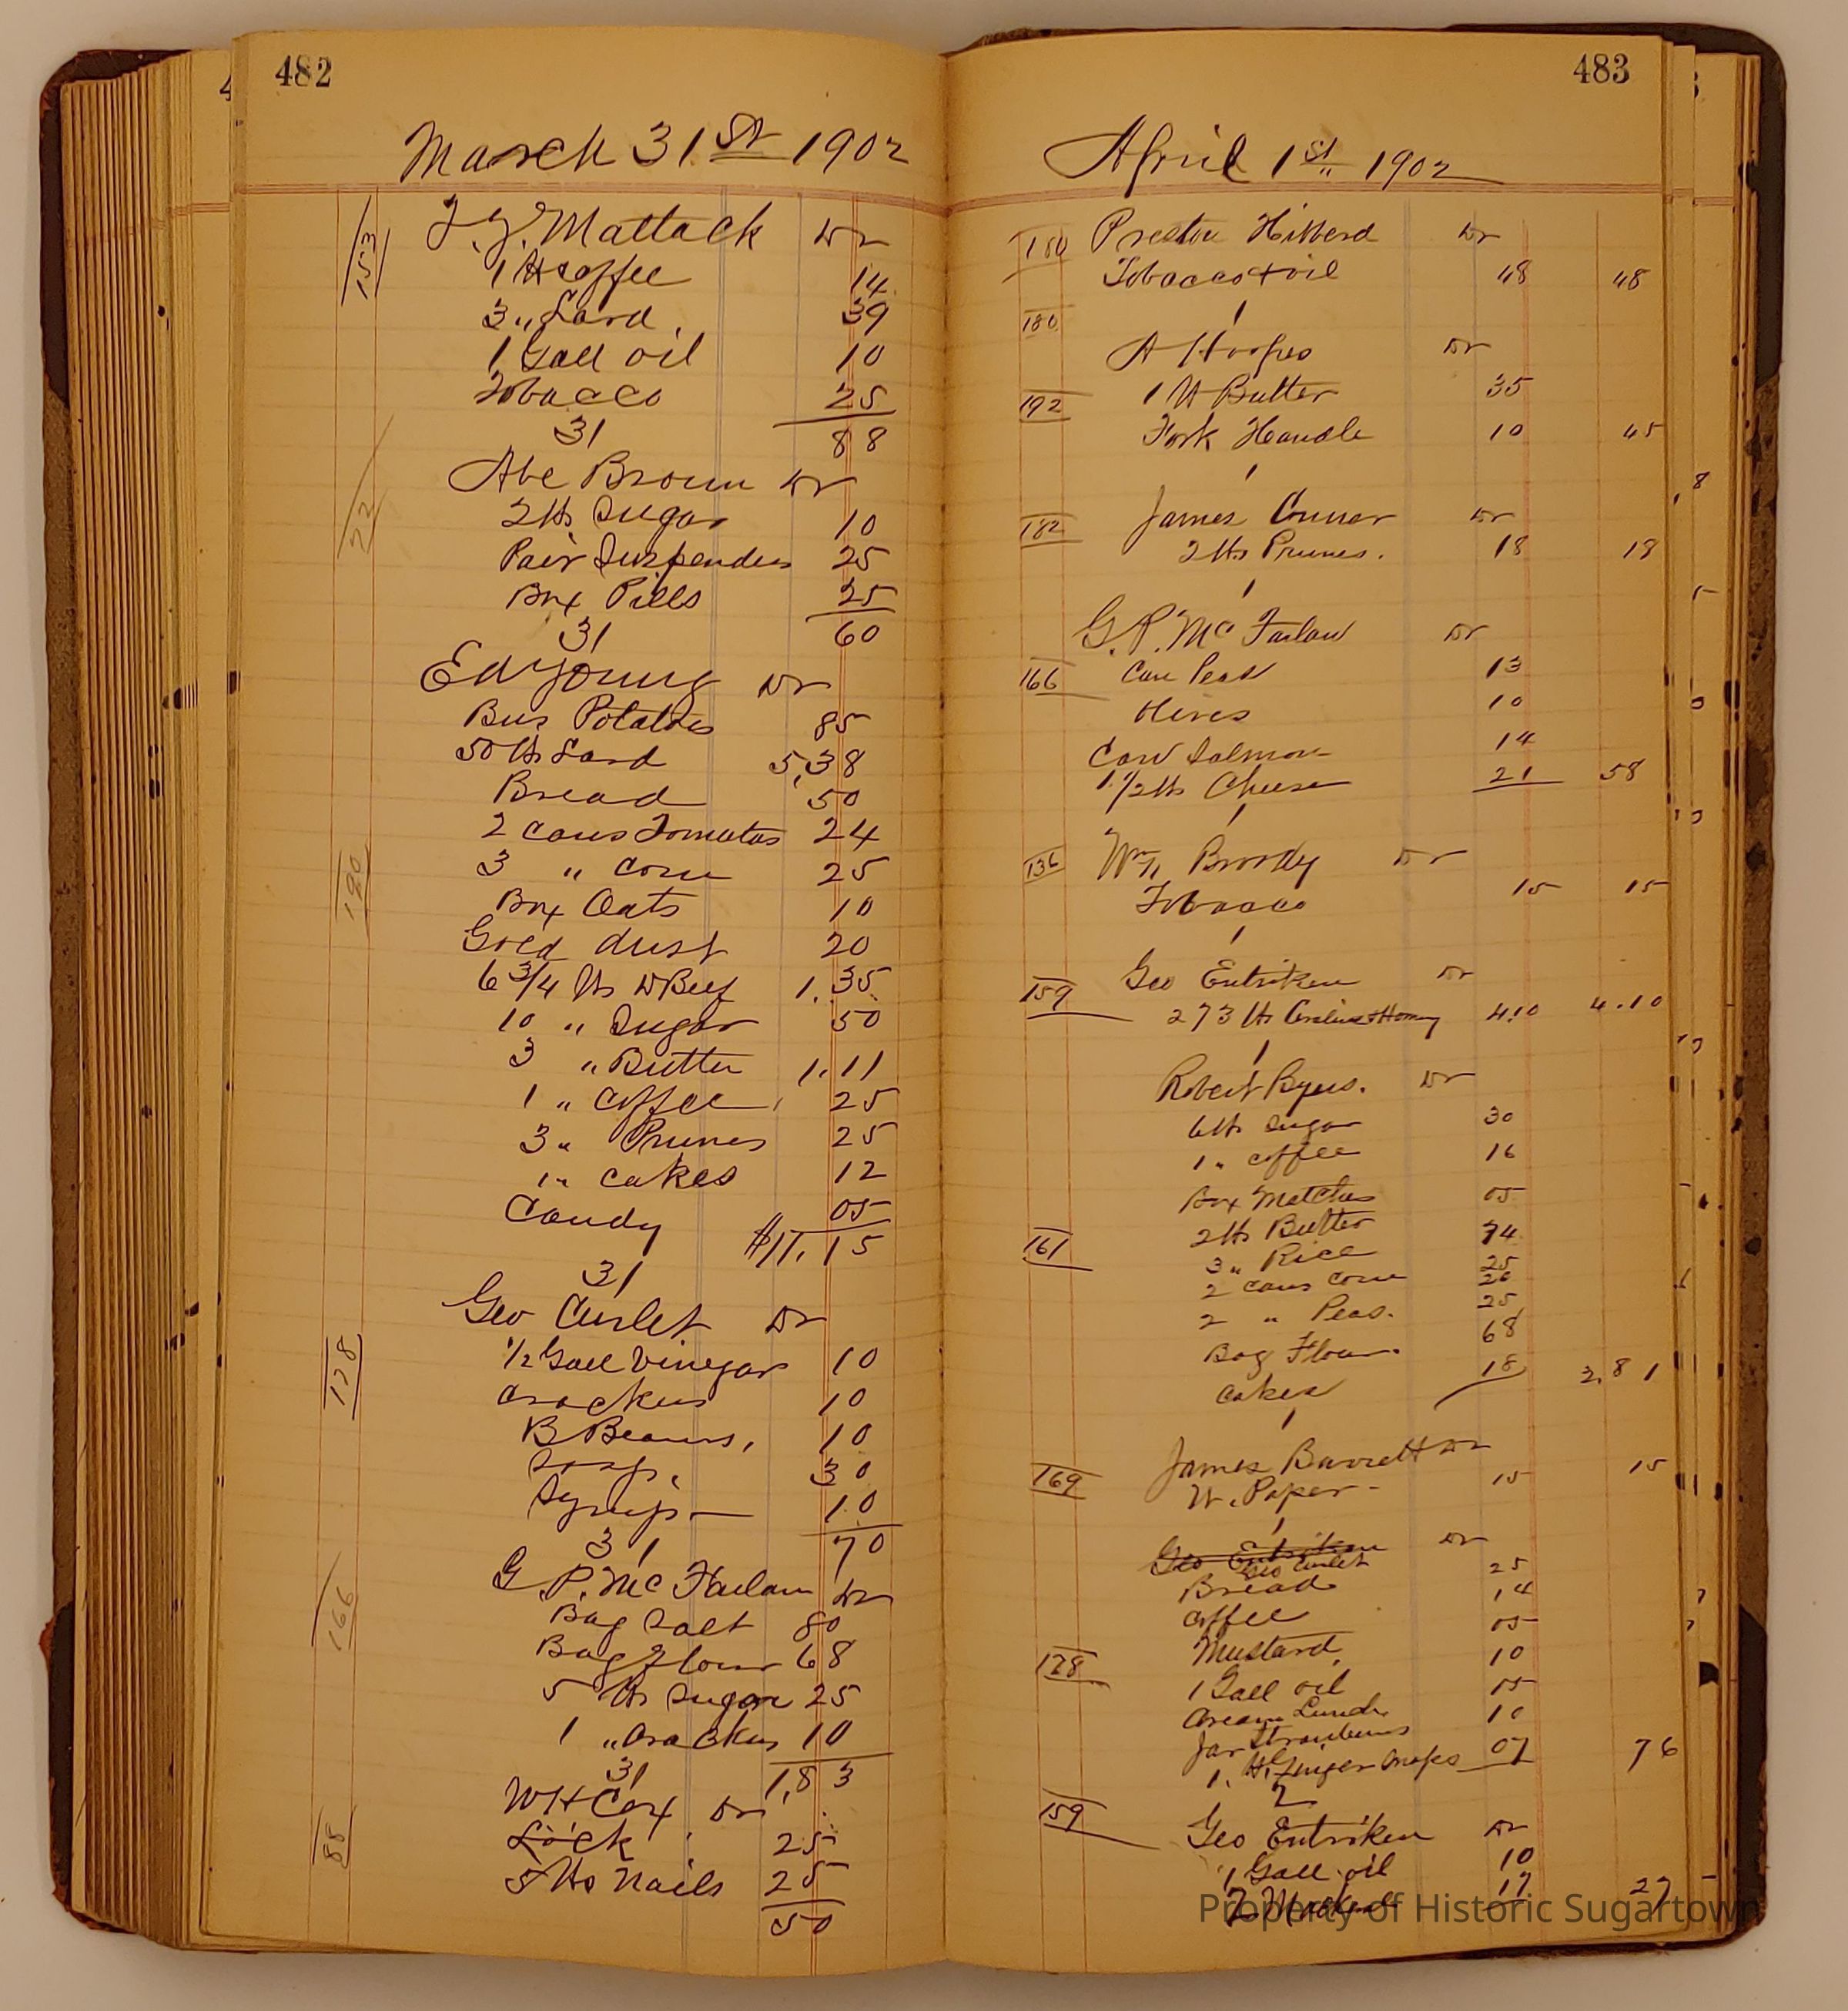 482
March 31st 1902
153
J. J. Mattack Dr
1 lb Coffee 14
3 " Lard. 39
1 Gall oil 10
Tobacco 25
31 88
22
Abe Broun Dr
2 lbs Sugar 10
Pair Suspenders 25
Box Pills 25
31 60
190
Ed Young Dr
Bus Potatoes 85
50 lb Lard 5,38
Bread 50
2 cans Tomatoes 24
3 " corn 25
Box Oats 10
Gold dust 20
6 3/4 lbs D Beef 1.35
10 " Sugar 50
3 " Butter 1.11
1 " coffee, 25
3 " Prunes 25
1 " cakes 12
Candy 05
$11.15
31
178
Geo Curlet Dr
1/2 Gall Vinegar 10
Crackers 10
B Beans, 10
Soap. 30
Syrup 10
31 70
166
G. P. Mc Farlan Dr
Bag Salt 80
Bag Flour 68
5 lbs Sugar 25
1 " Crackers 10
31 1,83
88
W H Cox Dr
Lock 25
5 lbs nails 25
50
483
April 1st 1902
180 Preston Hibberd Dr
Tobacco & oil 48 48
180 1
A Hoopes Dr
192 1 lb Butter 35
Fork Handle 10 45
1
182 James Conner Dr
2 lbs Prunes. 18 18
1
G. P. Mc Farlan Dr
166 Can Peas 13
Olives 10
Can Salmon 14
1 1/2 lbs Cheese 21 58
1
136 Wm Broody Dr
Tobacco 15 15
1
159 Geo Entriken Dr
273 lbs & Hominy 4.10 4.10
1
Robert Byers. Dr
6 lbs Sugar 30
1 " coffee 16
Box Matches 05
2 lbs Butter 74
161 3 " Rice 25
2 cans corn 20
2 " Peas. 25
Bag Flour 68
Cakes 18 2.81
1
169 James Barrett Dr
W. Paper 15 15
1
Geo Entriken Dr
Geo Curlet
Bread 25
Coffee 14
Mustard, 05
178 1 Gall oil 10
Cream Lunch 15
Jar 10
1 lb Ginger Snaps 07 76
2
159 Geo Entriken Dr
1 Gall oil 10
2 Mackerel 17 27
Property of Historic Sugartown